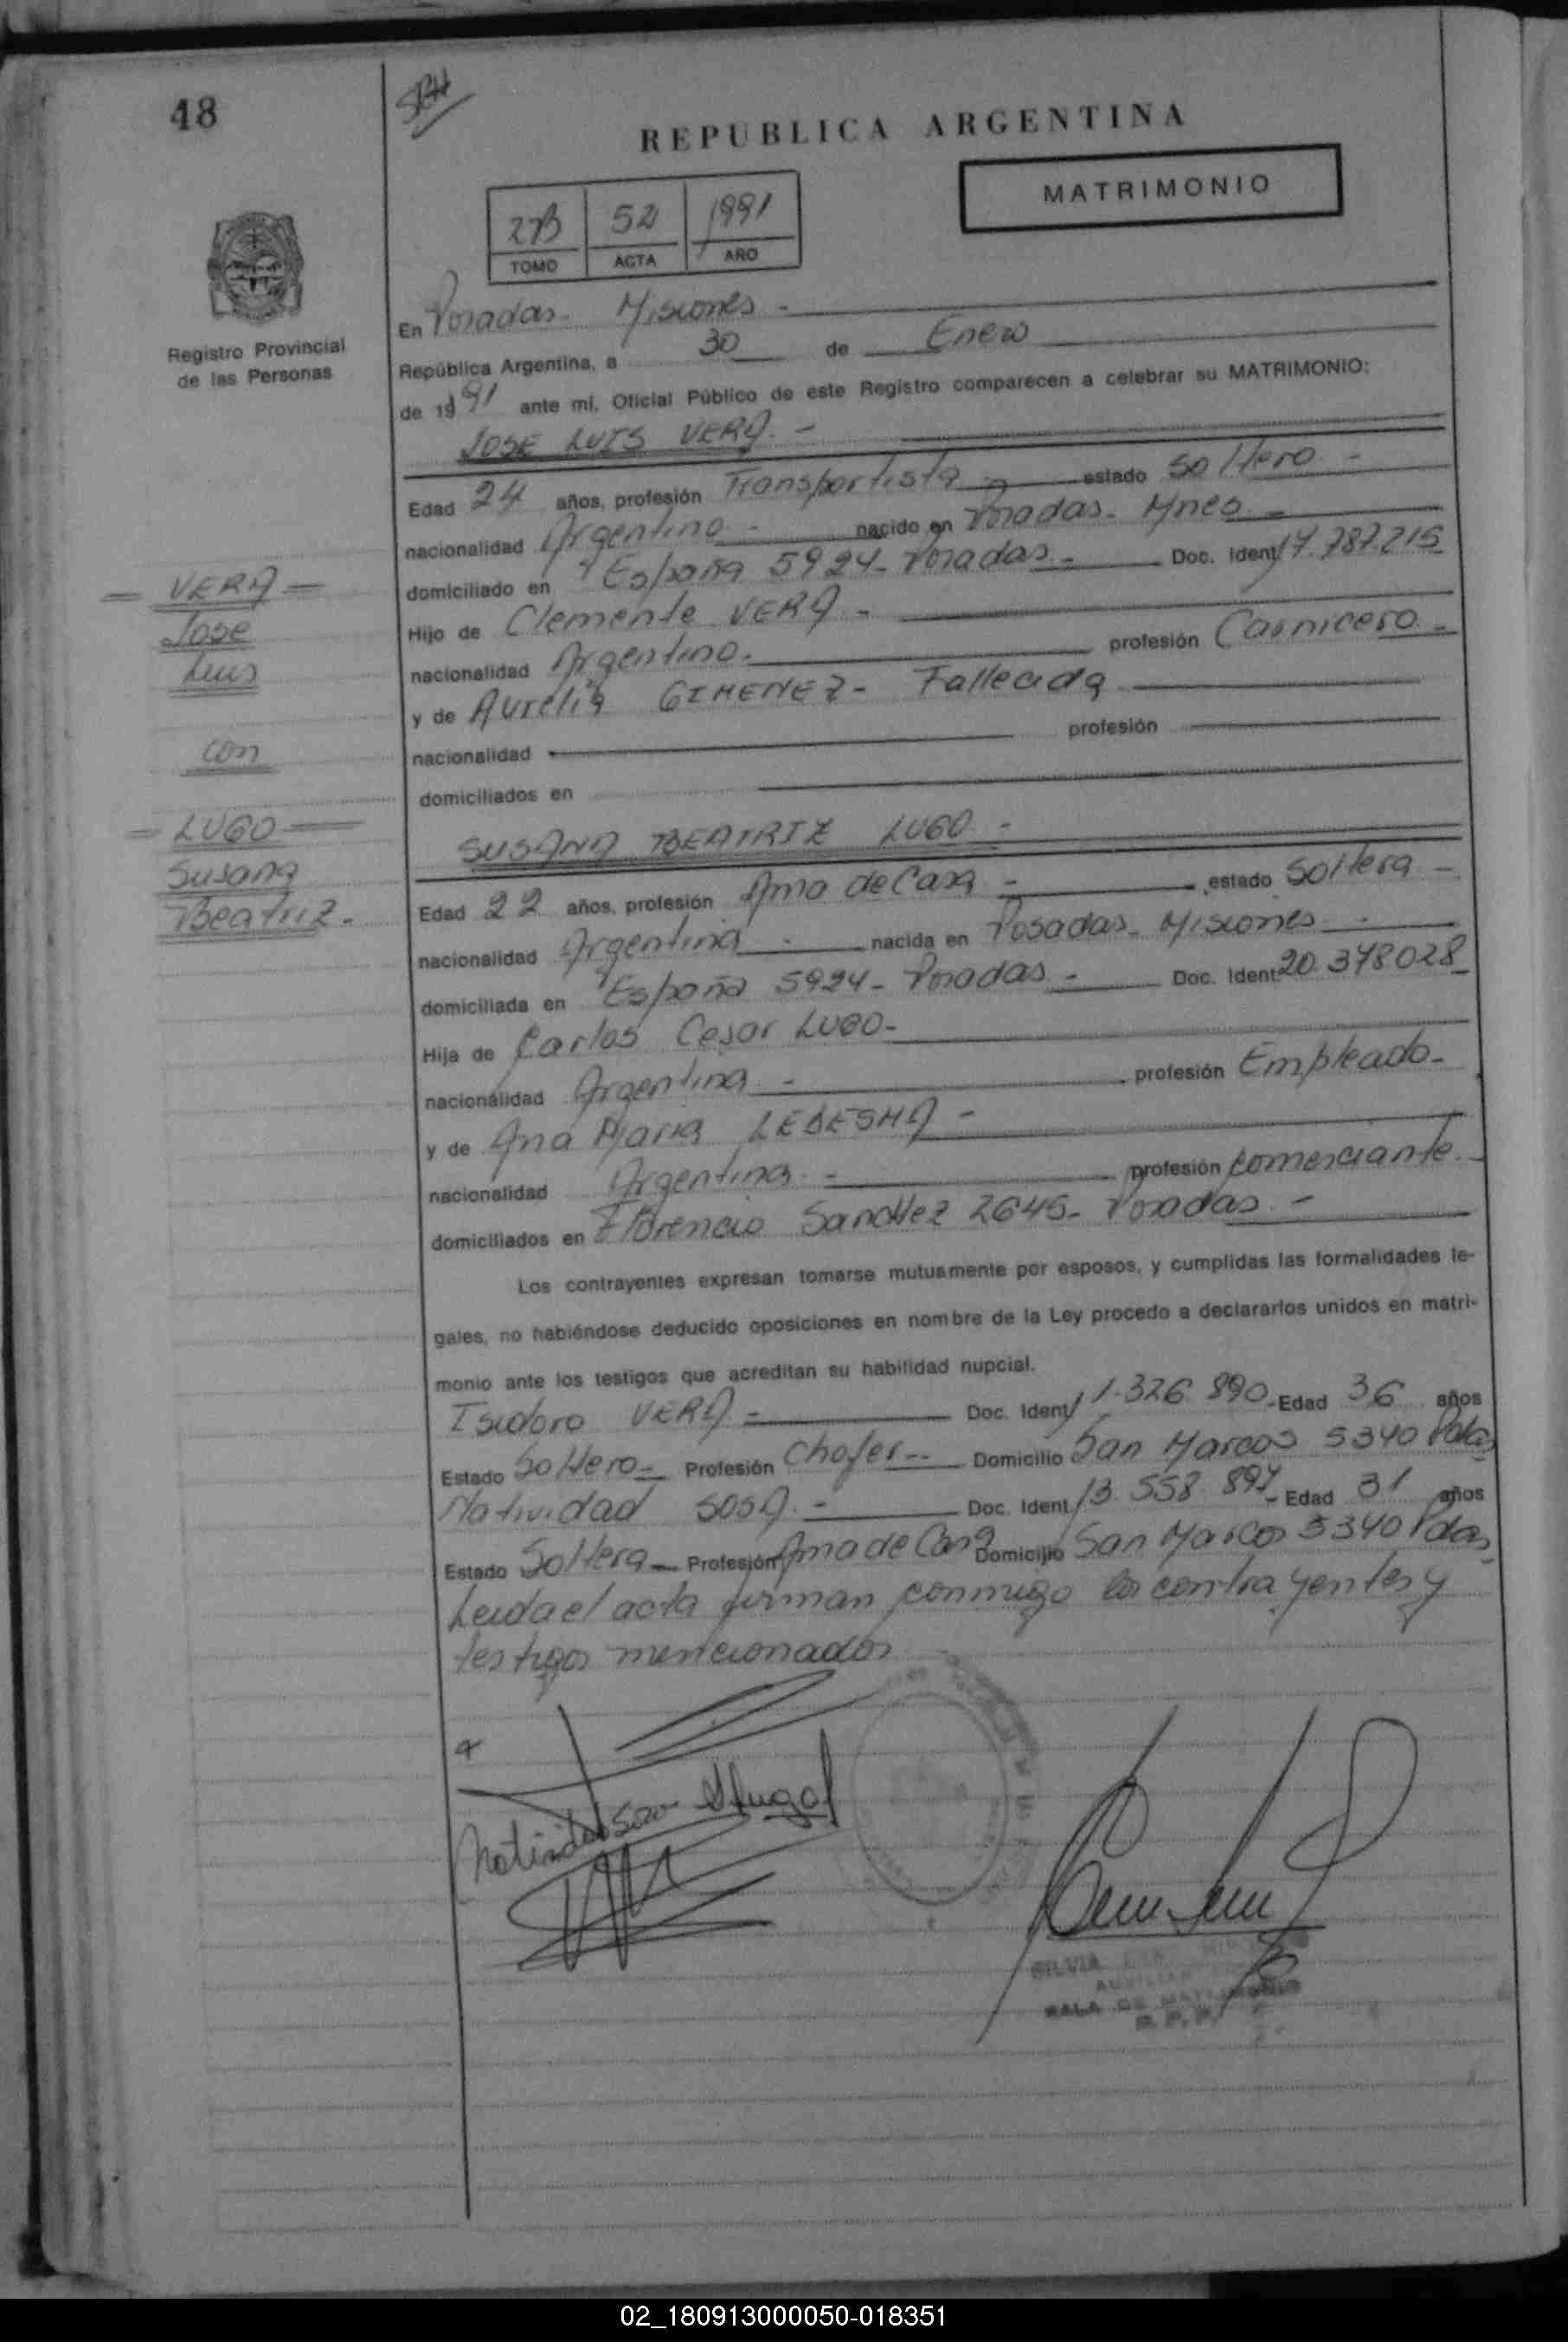 48
REPUBLICA ARGENTINA
MATRIMONIO
52 1991
TOMO ACTA AÑO
Registro Provincial
de las Personas
En Posadas - Misiones -
República Argentina, a 30 de Enero
de 1991 ante mí, Oficial Público de este Registro comparecen a celebrar su MATRIMONIO:
JOSE LUIS VERA -
Edad 24 años, profesión Transportista - estado Soltero -
nacionalidad Argentino - nacido en Posadas - Mnes -
domiciliado en España 5924 - Posadas - Doc. Ident 17.787.215
Hijo de Clemente VERA -
nacionalidad Argentino - profesión Carnicero -
y de Aurelia GIMENEZ - Fallecida
nacionalidad profesión
domiciliados en
SUSANA BEATRIZ LUGO -
Edad 22 años, profesión Ama de Casa - estado Soltera -
nacionalidad Argentina - nacida en Posadas - Misiones -
domiciliada en España 5924 - Posadas - Doc. Ident. 20.378028
Hija de Carlos Cesar LUGO -
nacionalidad Argentina - profesión Empleado -
y de Ana Maria LEDESMA -
nacionalidad Argentina - profesión comerciante -
domiciliados en Florencio Sanchez 2645 - Posadas -
Los contrayentes expresan tomarse mutuamente por esposos, y cumplidas las formalidades le-
gales, no habiéndose deducido oposiciones en nombre de la Ley procedo a declararlos unidos en matri-
monio ante los testigos que acreditan su habilidad nupcial.
Isidoro VERA - Doc. Ident 11.326.890 - Edad 36 años
Estado Soltero - Profesión Chofer - Domicilio San Marcos 5340 Pdas
Natividad SOSA - Doc. Ident 13.558.897 - Edad 31 años
Estado Soltera - Profesión Ama de Casa Domicilio San Marcos 5340 Pdas
Leida el acta firman conmigo los contrayentes y
testigos mencionados
= VERA =
Jose
Luis
con
= LUGO =
Susana
Beatriz -
Natividad Sosa SLugo
SILVIA
SALA DE MATRIMONIO
R. P. P.
02_180913000050-018351